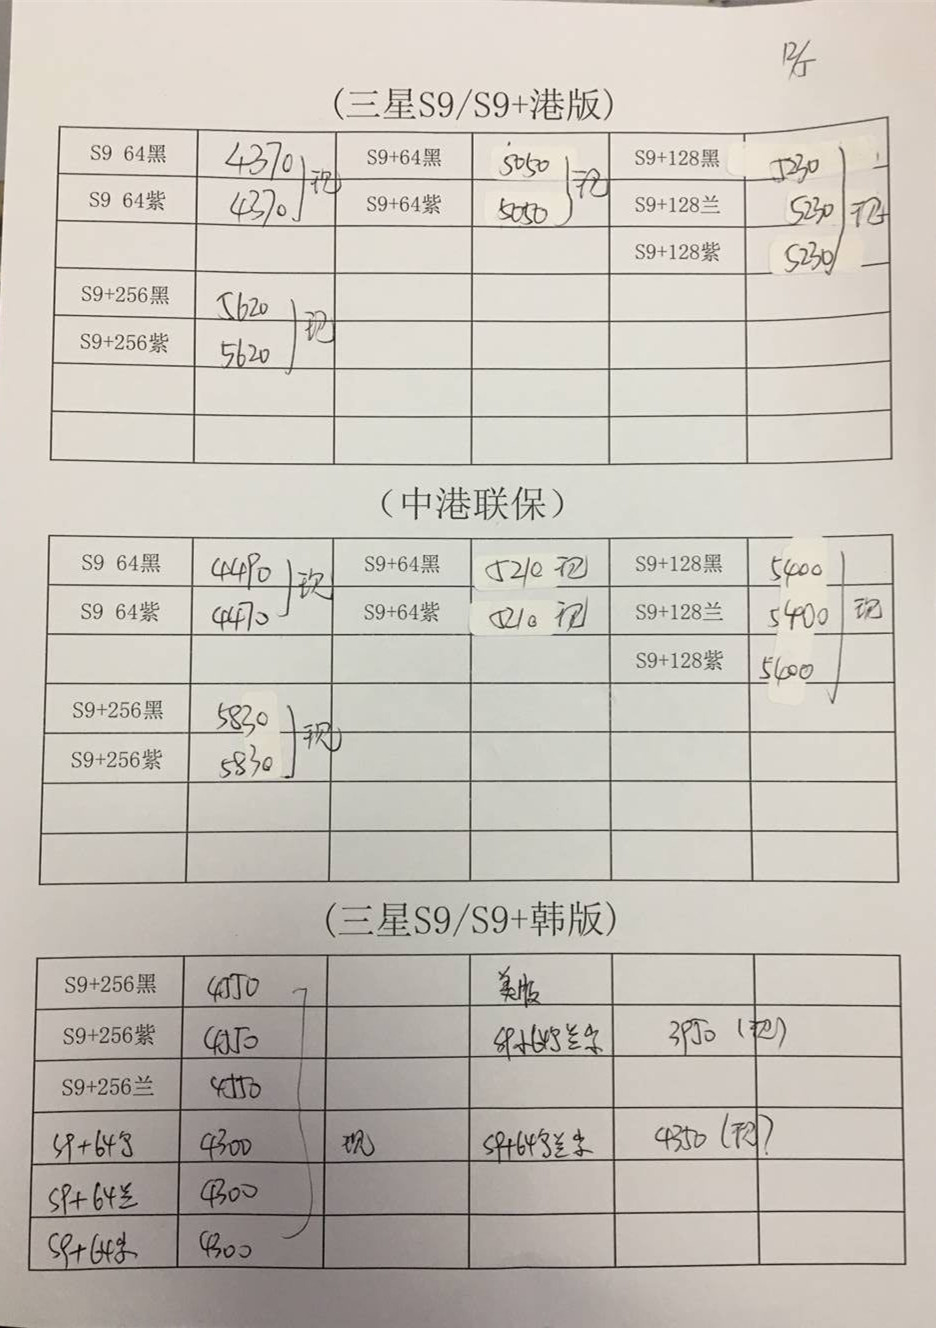 12/5
(三星S9/S9+港版)
S9 64黑 4370 现 S9+64黑 5050 现 S9+128黑 5230
S9 64紫 4370 S9+64紫 5050 S9+128兰 5230 现
S9+128紫 5230
S9+256黑 5620 现
S9+256紫 5620
（中港联保）
S9 64黑 4490 现 S9+64黑 5210 现 S9+128黑 5400
S9 64紫 4470 S9+64紫 5210 现 S9+128兰 5400 现
S9+128紫 5400
S9+256黑 5830 现
S9+256紫 5830
(三星S9/S9+韩版)
S9+256黑 4550 美版
S9+256紫 4550 S9+64 兰 3950 (现)
S9+256兰 4550
S9+64 4300 现 S9+64 兰 4350 (现)
S9+64兰 4300
S9+64 4300